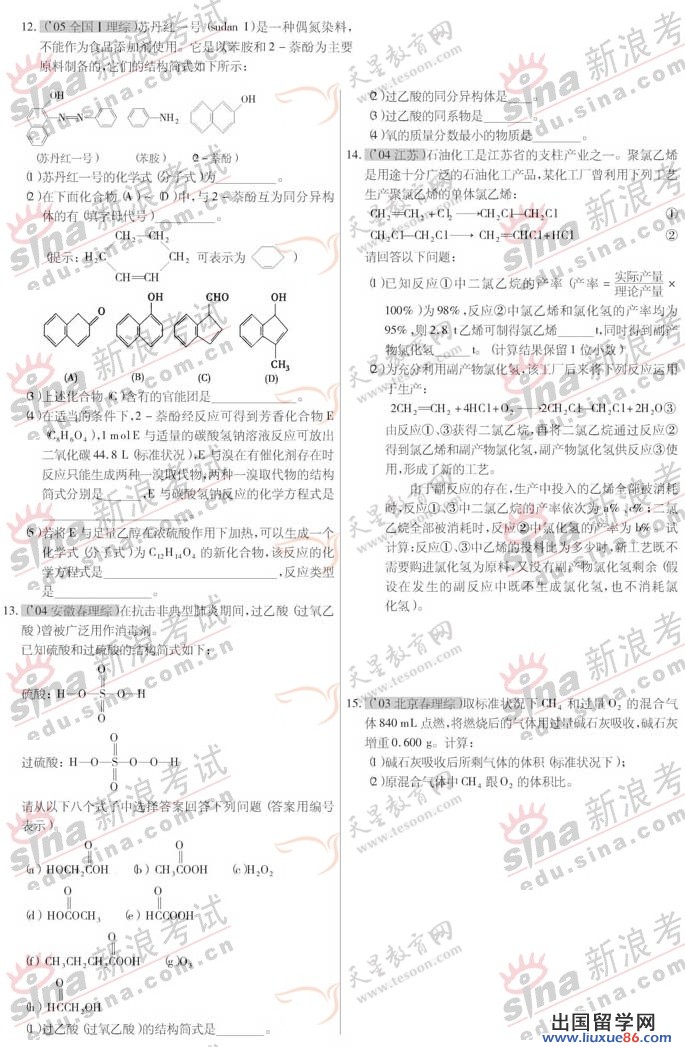 12.(’05全国Ⅰ理综)苏丹红一号(sudan Ⅰ)是一种偶氮染料,
不能作为食品添加剂使用。它是以苯胺和2-萘酚为主要
原料制备的,它们的结构简式如下所示:
OH
N=N
NH₂
OH
(苏丹红一号) (苯胺) (2-萘酚)
(1)苏丹红一号的化学式(分子式)为
(2)在下面化合物(A)~(D)中,与2-萘酚互为同分异构
体的有(填字母代号)。
(提示:
CH₂—CH₂
H₂C CH₂ 可表示为 )
CH=CH
O OH CHO OH
CH₃
(A) (B) (C) (D)
(3)上述化合物(C)含有的官能团是。
(4)在适当的条件下,2-萘酚经反应可得到芳香化合物E
(C₈H₆O₄),1 mol E与适量的碳酸氢钠溶液反应可放出
二氧化碳44.8 L(标准状况),E与溴在有催化剂存在时
反应只能生成两种一溴取代物,两种一溴取代物的结构
简式分别是,E与碳酸氢钠反应的化学方程式是
(5)若将E与足量乙醇在浓硫酸作用下加热,可以生成一个
化学式(分子式)为C₁₂H₁₄O₄的新化合物,该反应的化
学方程式是,反应类型
是。
13.(’04安徽春理综)在抗击非典型肺炎期间,过乙酸(过氧乙
酸)曾被广泛用作消毒剂。
已知硫酸和过硫酸的结构简式如下:
O
硫酸:H—O—S—O—H
O
O
过硫酸:H—O—S—O—O—H
O
请从以下八个式子中选择答案回答下列问题(答案用编号
表示)。
O O
(a)HOCH₂COH (b)CH₃COOH (c)H₂O₂
O O
(d)HOCOCH₃ (e)HCCOOH
O
(f)CH₃CH₂CH₂COOH (g)O₃
O
(h)HCCH₂OH
(1)过乙酸(过氧乙酸)的结构简式是。
(2)过乙酸的同分异构体是。
(3)过乙酸的同系物是。
(4)氧的质量分数最小的物质是。
14.(’04江苏)石油化工是江苏省的支柱产业之一。聚氯乙烯
是用途十分广泛的石油化工产品,某化工厂曾利用下列工艺
生产聚氯乙烯的单体氯乙烯:
CH₂=CH₂+Cl₂→CH₂Cl—CH₂Cl ①
CH₂Cl—CH₂Cl→CH₂=CHCl+HCl ②
请回答以下问题:
(1)已知反应①中二氯乙烷的产率(产率=实际产量/理论产量×
100%)为98%,反应②中氯乙烯和氯化氢的产率均为
95%,则2.8 t乙烯可制得氯乙烯t,同时得到副产
物氯化氢t。(计算结果保留1位小数)
(2)为充分利用副产物氯化氢,该工厂后来将下列反应运用
于生产:
2CH₂=CH₂+4HCl+O₂→2CH₂Cl—CH₂Cl+2H₂O③
由反应①、③获得二氯乙烷,再将二氯乙烷通过反应②
得到氯乙烯和副产物氯化氢,副产物氯化氢供反应③使
用,形成了新的工艺。
由于副反应的存在,生产中投入的乙烯全部被消耗
时,反应①、③中二氯乙烷的产率依次为a%、c%;二氯
乙烷全部被消耗时,反应②中氯化氢的产率为b%。试
计算:反应①、③中乙烯的投料比为多少时,新工艺既不
需要购进氯化氢为原料,又没有副产物氯化氢剩余(假
设在发生的副反应中既不生成氯化氢,也不消耗氯
化氢)。
15.(’03北京春理综)取标准状况下CH₄和过量O₂的混合气
体840 mL点燃,将燃烧后的气体用过量碱石灰吸收,碱石灰
增重0.600 g。计算:
(1)碱石灰吸收后所剩气体的体积(标准状况下);
(2)原混合气体中CH₄跟O₂的体积比。
新浪考试
sina
edu.sina.com.cn
天星教育网
www.tesoon.com
出国留学网
www.liuxue86.com